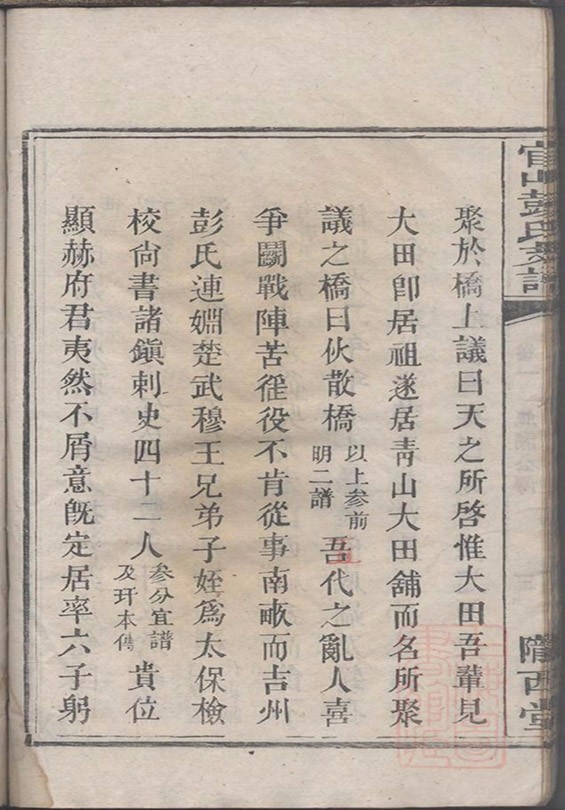 聚於橋上議曰天之所啓惟大田吾輩見
大田卽居祖遂居靑山大田舖而名所聚
議之橋曰伙散橋以上參前明二譜五代之亂人喜
爭鬬戰陣苦徭役不肯從事南畝而吉州
彭氏連婣楚武穆王兄弟子姪爲太保檢
校尙書諸鎭刺史四十二人參分宜譜及玕本傳貴位
顯赫府君夷然不屑意旣定居率六子躬
彭氏支譜
隴西堂